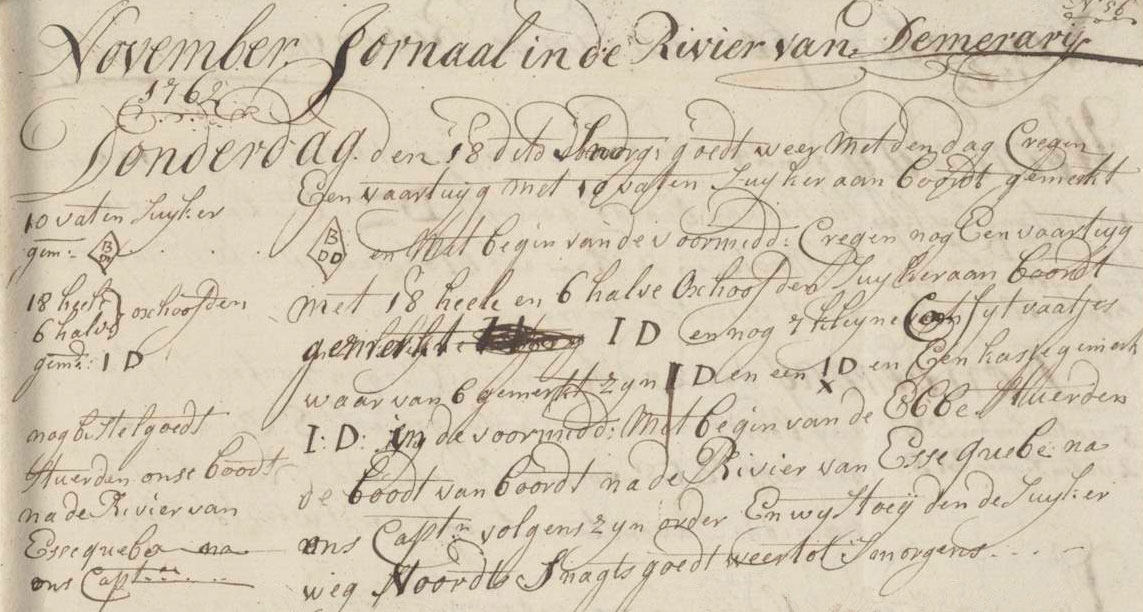 No 56
November. Jornaal in de Rivier van Demerarÿ
1762
Donderdag. den 18 dito Smorg: goedt weer Met den dag Cregen
Een vaartuÿg met 10 vaten Suÿker aan boordt gemerkt
10 vaten Suÿker
gem: B DD
B DD en Met begin van de voormidd: Cregen nog Een vaartuÿg
18 heele
6 halve } oxhoofden
gemt: I D
met 18 heele en 6 halve Oxhoofden Suÿker aan boordt
gemerkt I D en nog 7 kleyne Confyt vaatjes
waar van 6 gemerkt zyn I D en een I D x en Een kasse gemerk
I: D: in de voormidd: Met begin van de Ebbe Stuerden
de boodt van boordt na de Rivier van Essequebe na
ons Captn volgens zyn order En wÿ Stoeÿden de Suÿker
weg Noordt Snagts goedt weer tot Smorgens
nog bestelgoedt
Stuerden onse boodt
na de Rivier van
Essequebe na
ons Captn